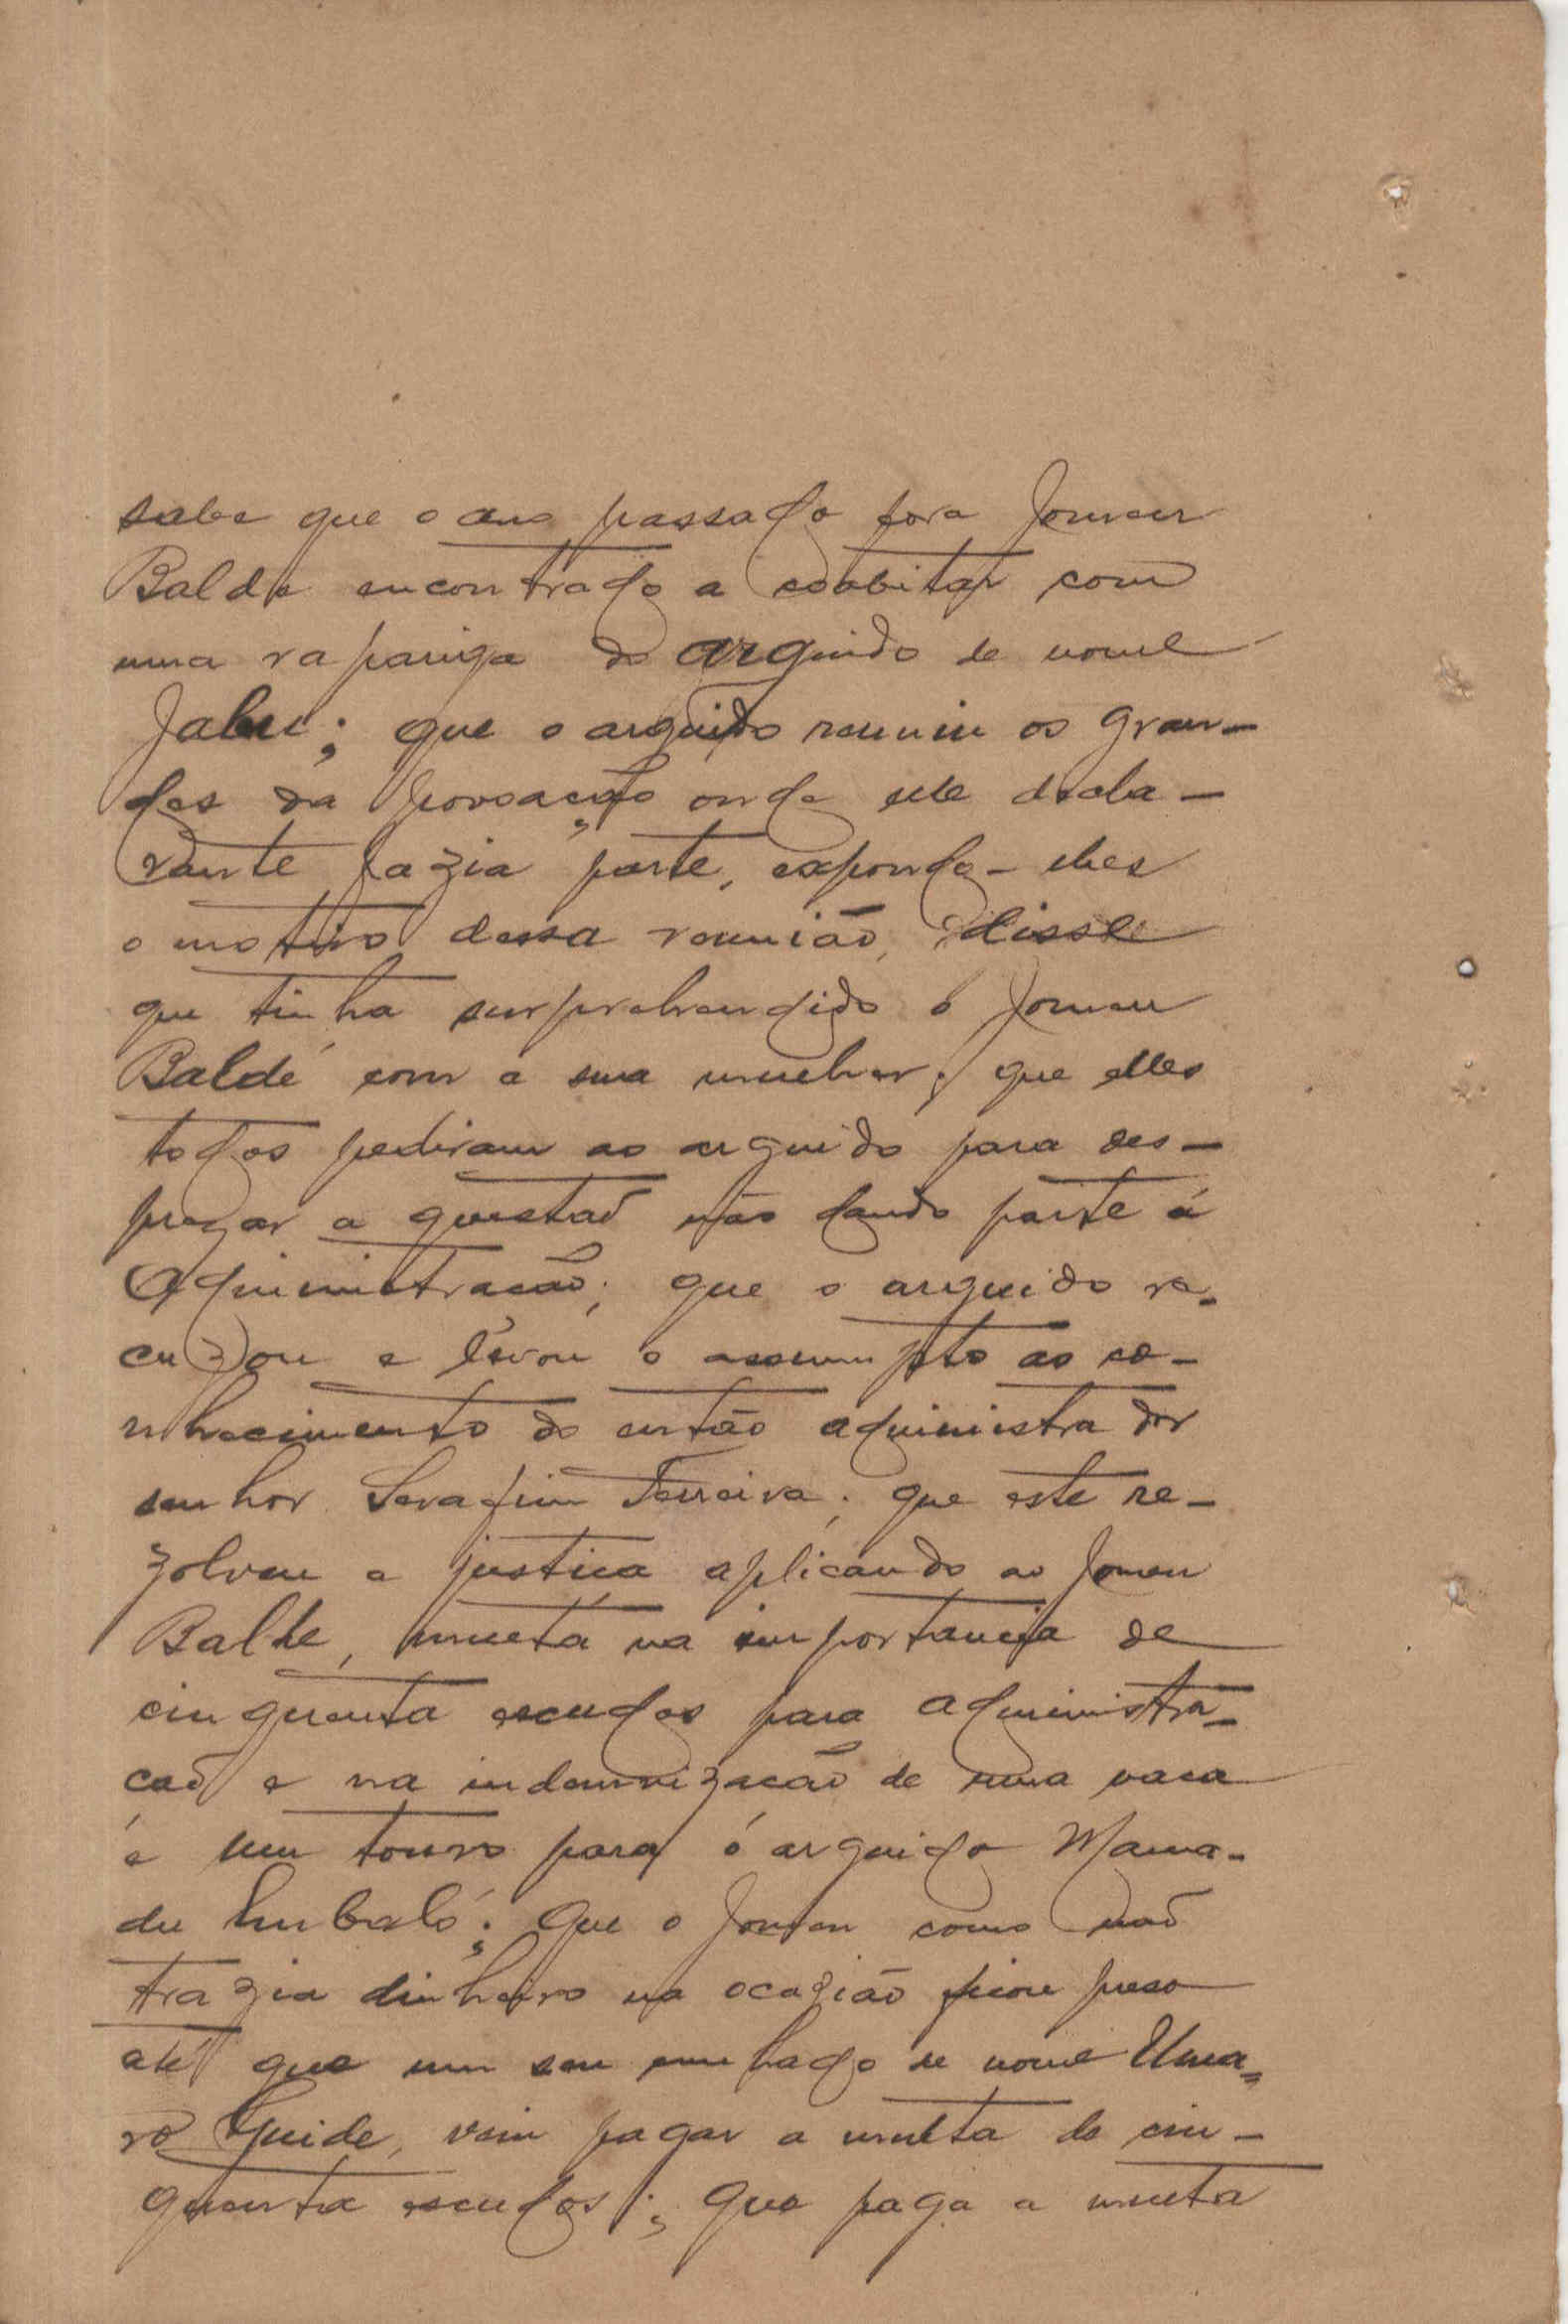 sabe que o ano passado fora Jomeu
Balde encontrado a coabitar com
uma rapariga do arguido de nome
Jabu; que o arguido reuniu os gran-
des da povoação onde elle decla-
rante fazia parte, expondo-lhes
o motivo dessa reunião, disse
que tinha surprehendido o Jomeu
Baldé com a sua mulher; que elles
todos pediram ao arguido para des-
prezar a questaõ não dando parte á
Administracão; que o arguido re-
cuzou e levou o assumpto ao co-
nhecimento do então administrador
senhor Serafim Ferreira; que este re-
zolveu a justica aplicando ao Jomeu
Balde, multa na importancia de
cinquenta escudos para administra-
caõ e na indemnizacão de uma vaca
e um touro para o arguido Mama-
du Embaló; Que o Jomeu como naõ
trazia dinheiro na ocazião ficou preso
até que um seu cunhado de nome Uma-
ro Guide, veiu pagar a multa de cin-
quenta escudos; Que paga a multa